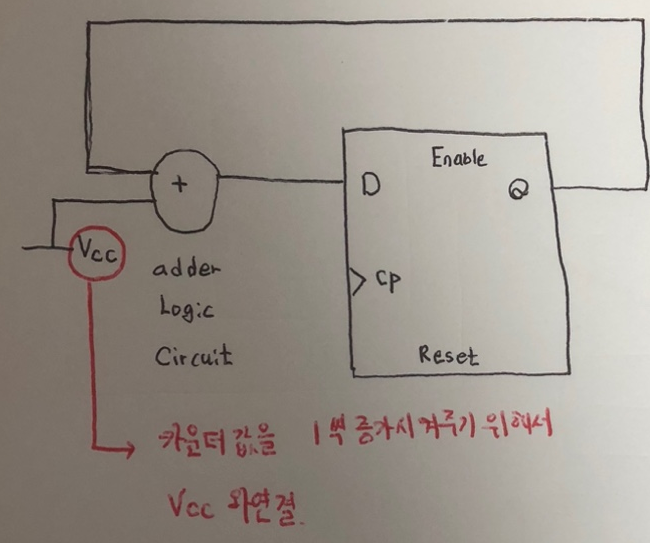 Enable
+
D
Q
Vcc
adder
Cp
Logic
Circuit
Reset
카운터 값을 1씩 증가시켜주기 위해서
Vcc 와연결.